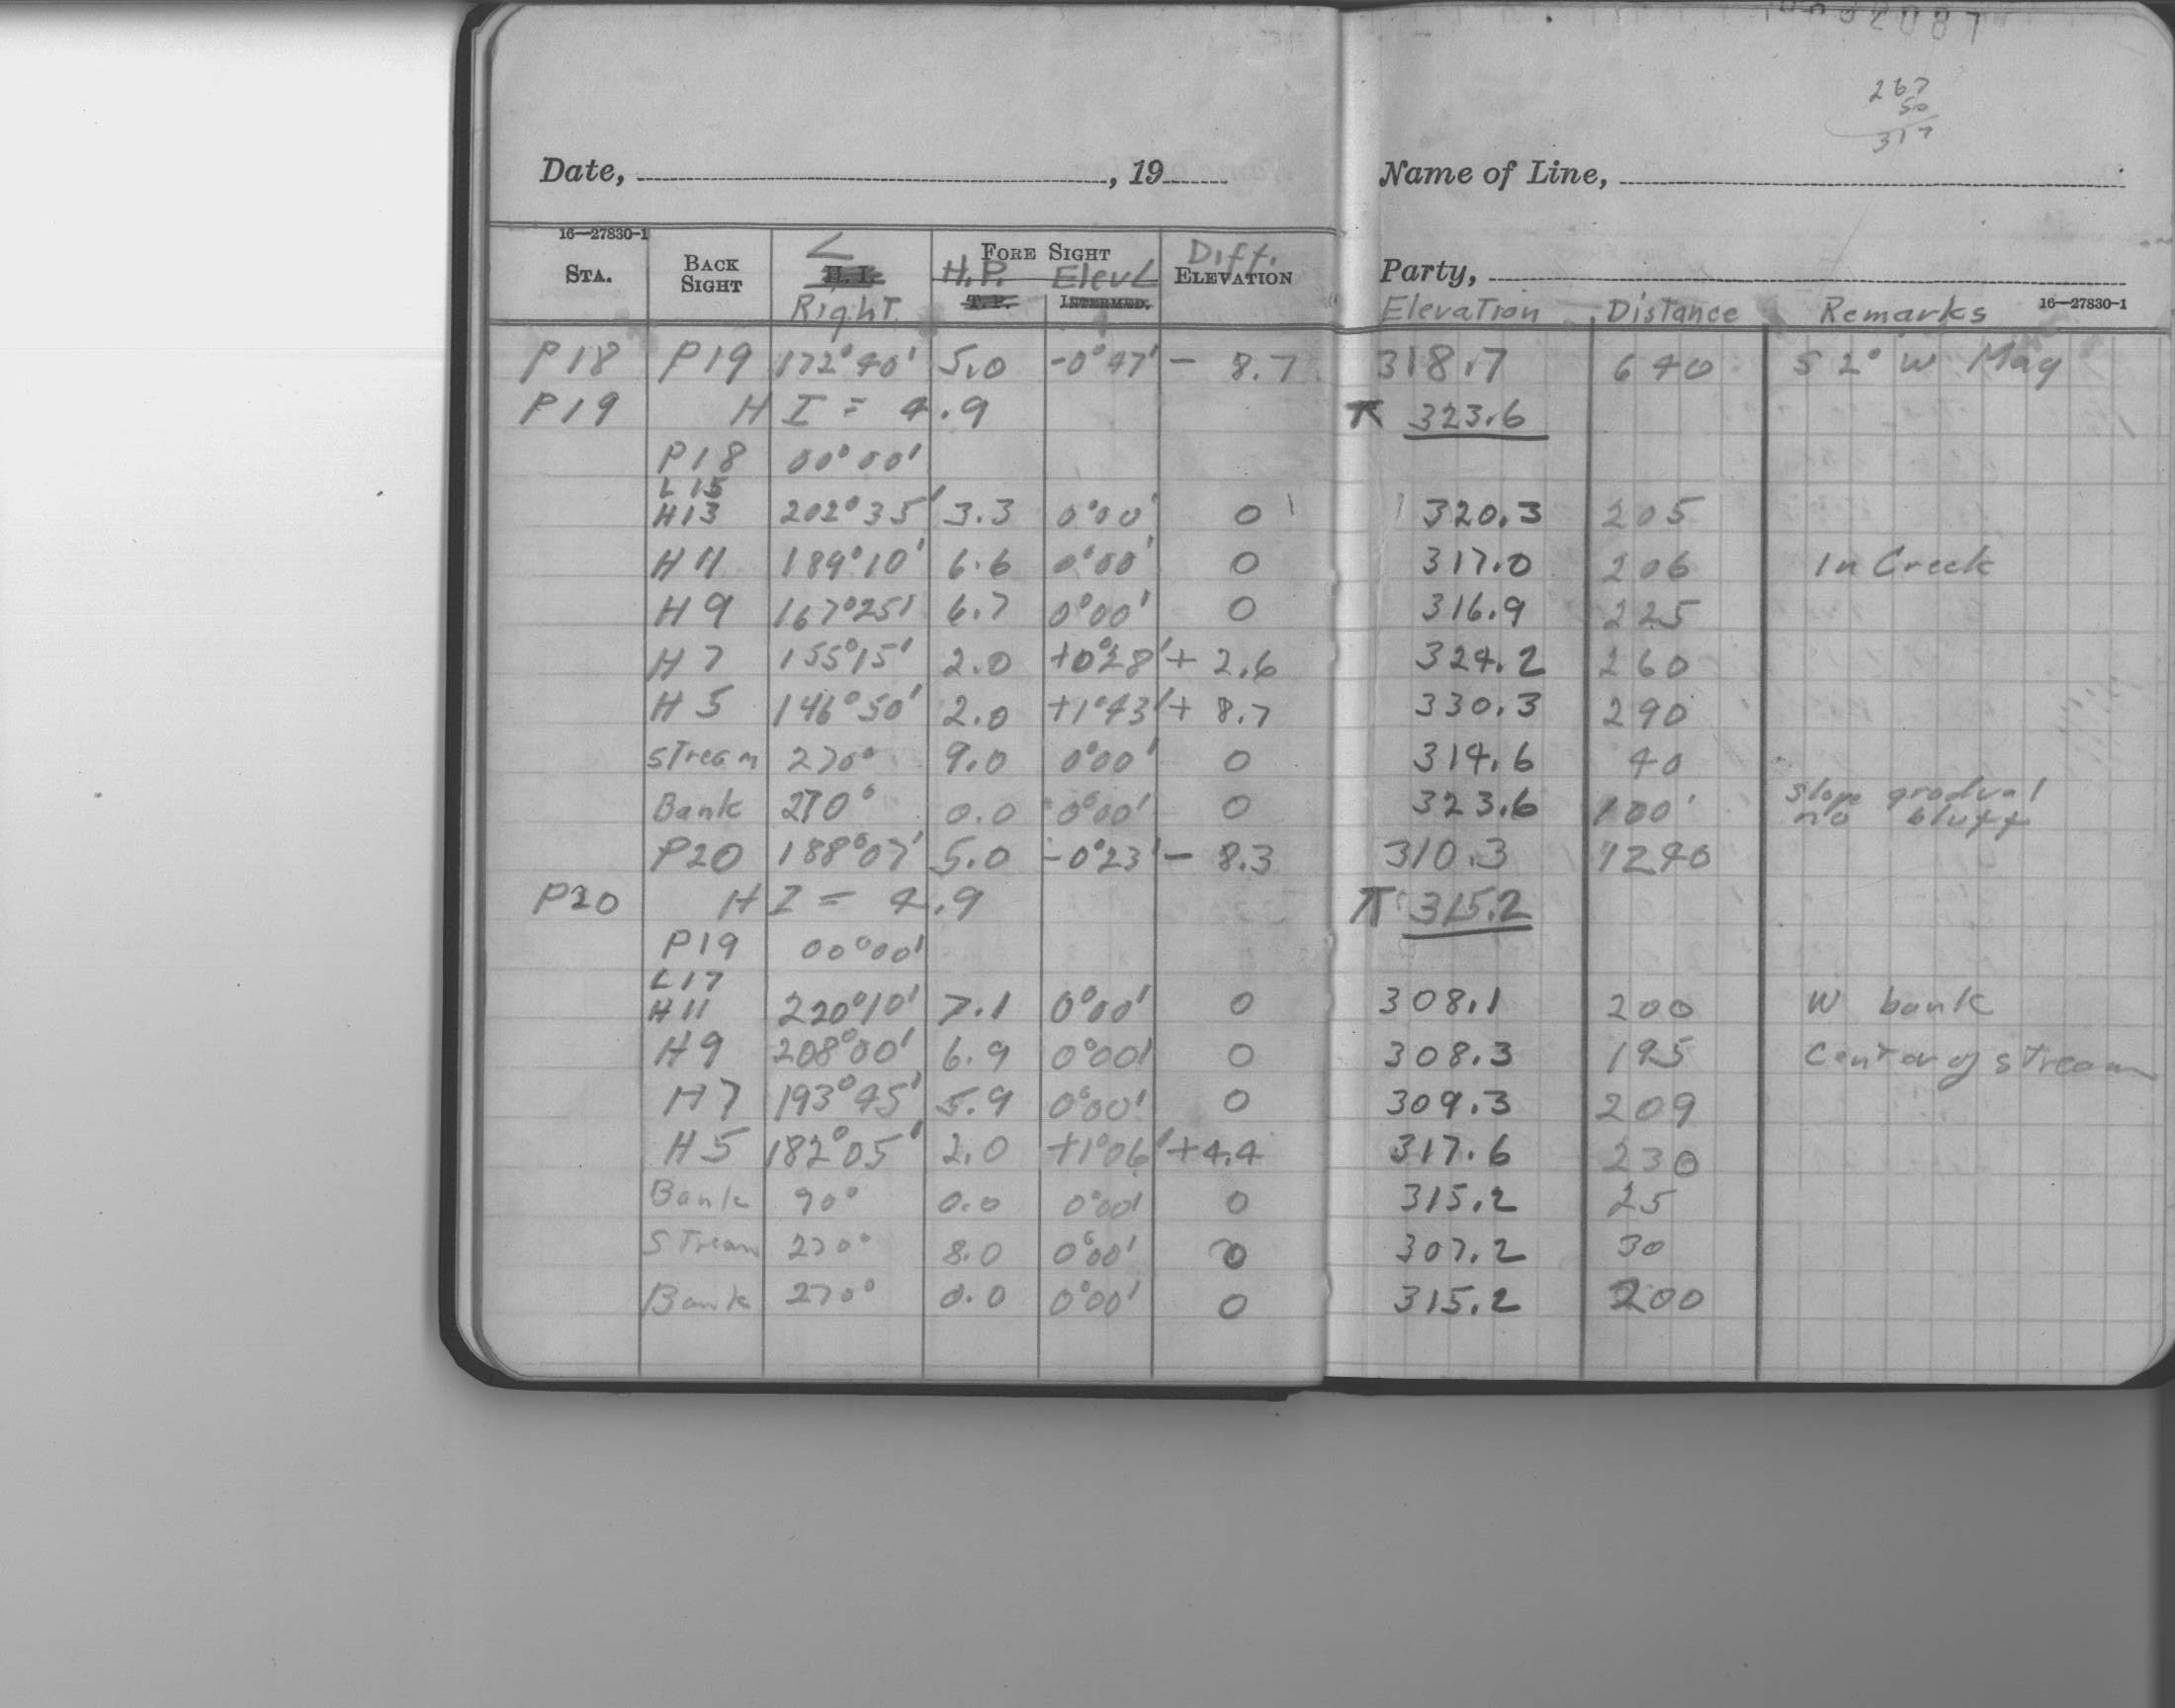 267
50
317
Date, , 19
Name of Line,
16—27830-1
STA. BACK SIGHT ∠ H. I. Right FORE SIGHT H.P. T. P. Elev∠ INTERMED. Diff. ELEVATION
Party,
Elevation Distance Remarks 16—27830-1
P18 P19 172°40' 5.0 -0°47' - 8.7 318.7 640 S 2° W Mag
P19 H I = 4.9 ⊼ 323.6
P18 00°00'
L15
H13 202°35' 3.3 0°00' 0 320.3 205
H11 189°10' 6.6 0°00' 0 317.0 206 In Creek
H9 167°25' 6.7 0°00' 0 316.9 225
H7 155°15' 2.0 +0°28' + 2.6 324.2 260
H5 146°50' 2.0 +1°43' + 8.7 330.3 290
Stream 270° 9.0 0°00' 0 314.6 40
Bank 270° 0.0 0°00' 0 323.6 100' Slope gradual
no bluff
P20 188°07' 5.0 -0°23' - 8.3 310.3 1240
P20 H I = 4.9 ⊼ 315.2
P19 00°00'
L17
H11 220°10' 7.1 0°00' 0 308.1 200 W bank
H9 208°00' 6.9 0°00' 0 308.3 195 Center of stream
H7 193°45' 5.9 0°00' 0 309.3 209
H5 182°05' 2.0 +1°06' +4.4 317.6 230
Bank 90° 0.0 0°00' 0 315.2 25
Stream 270° 8.0 0°00' 0 307.2 30
Bank 270° 0.0 0°00' 0 315.2 200